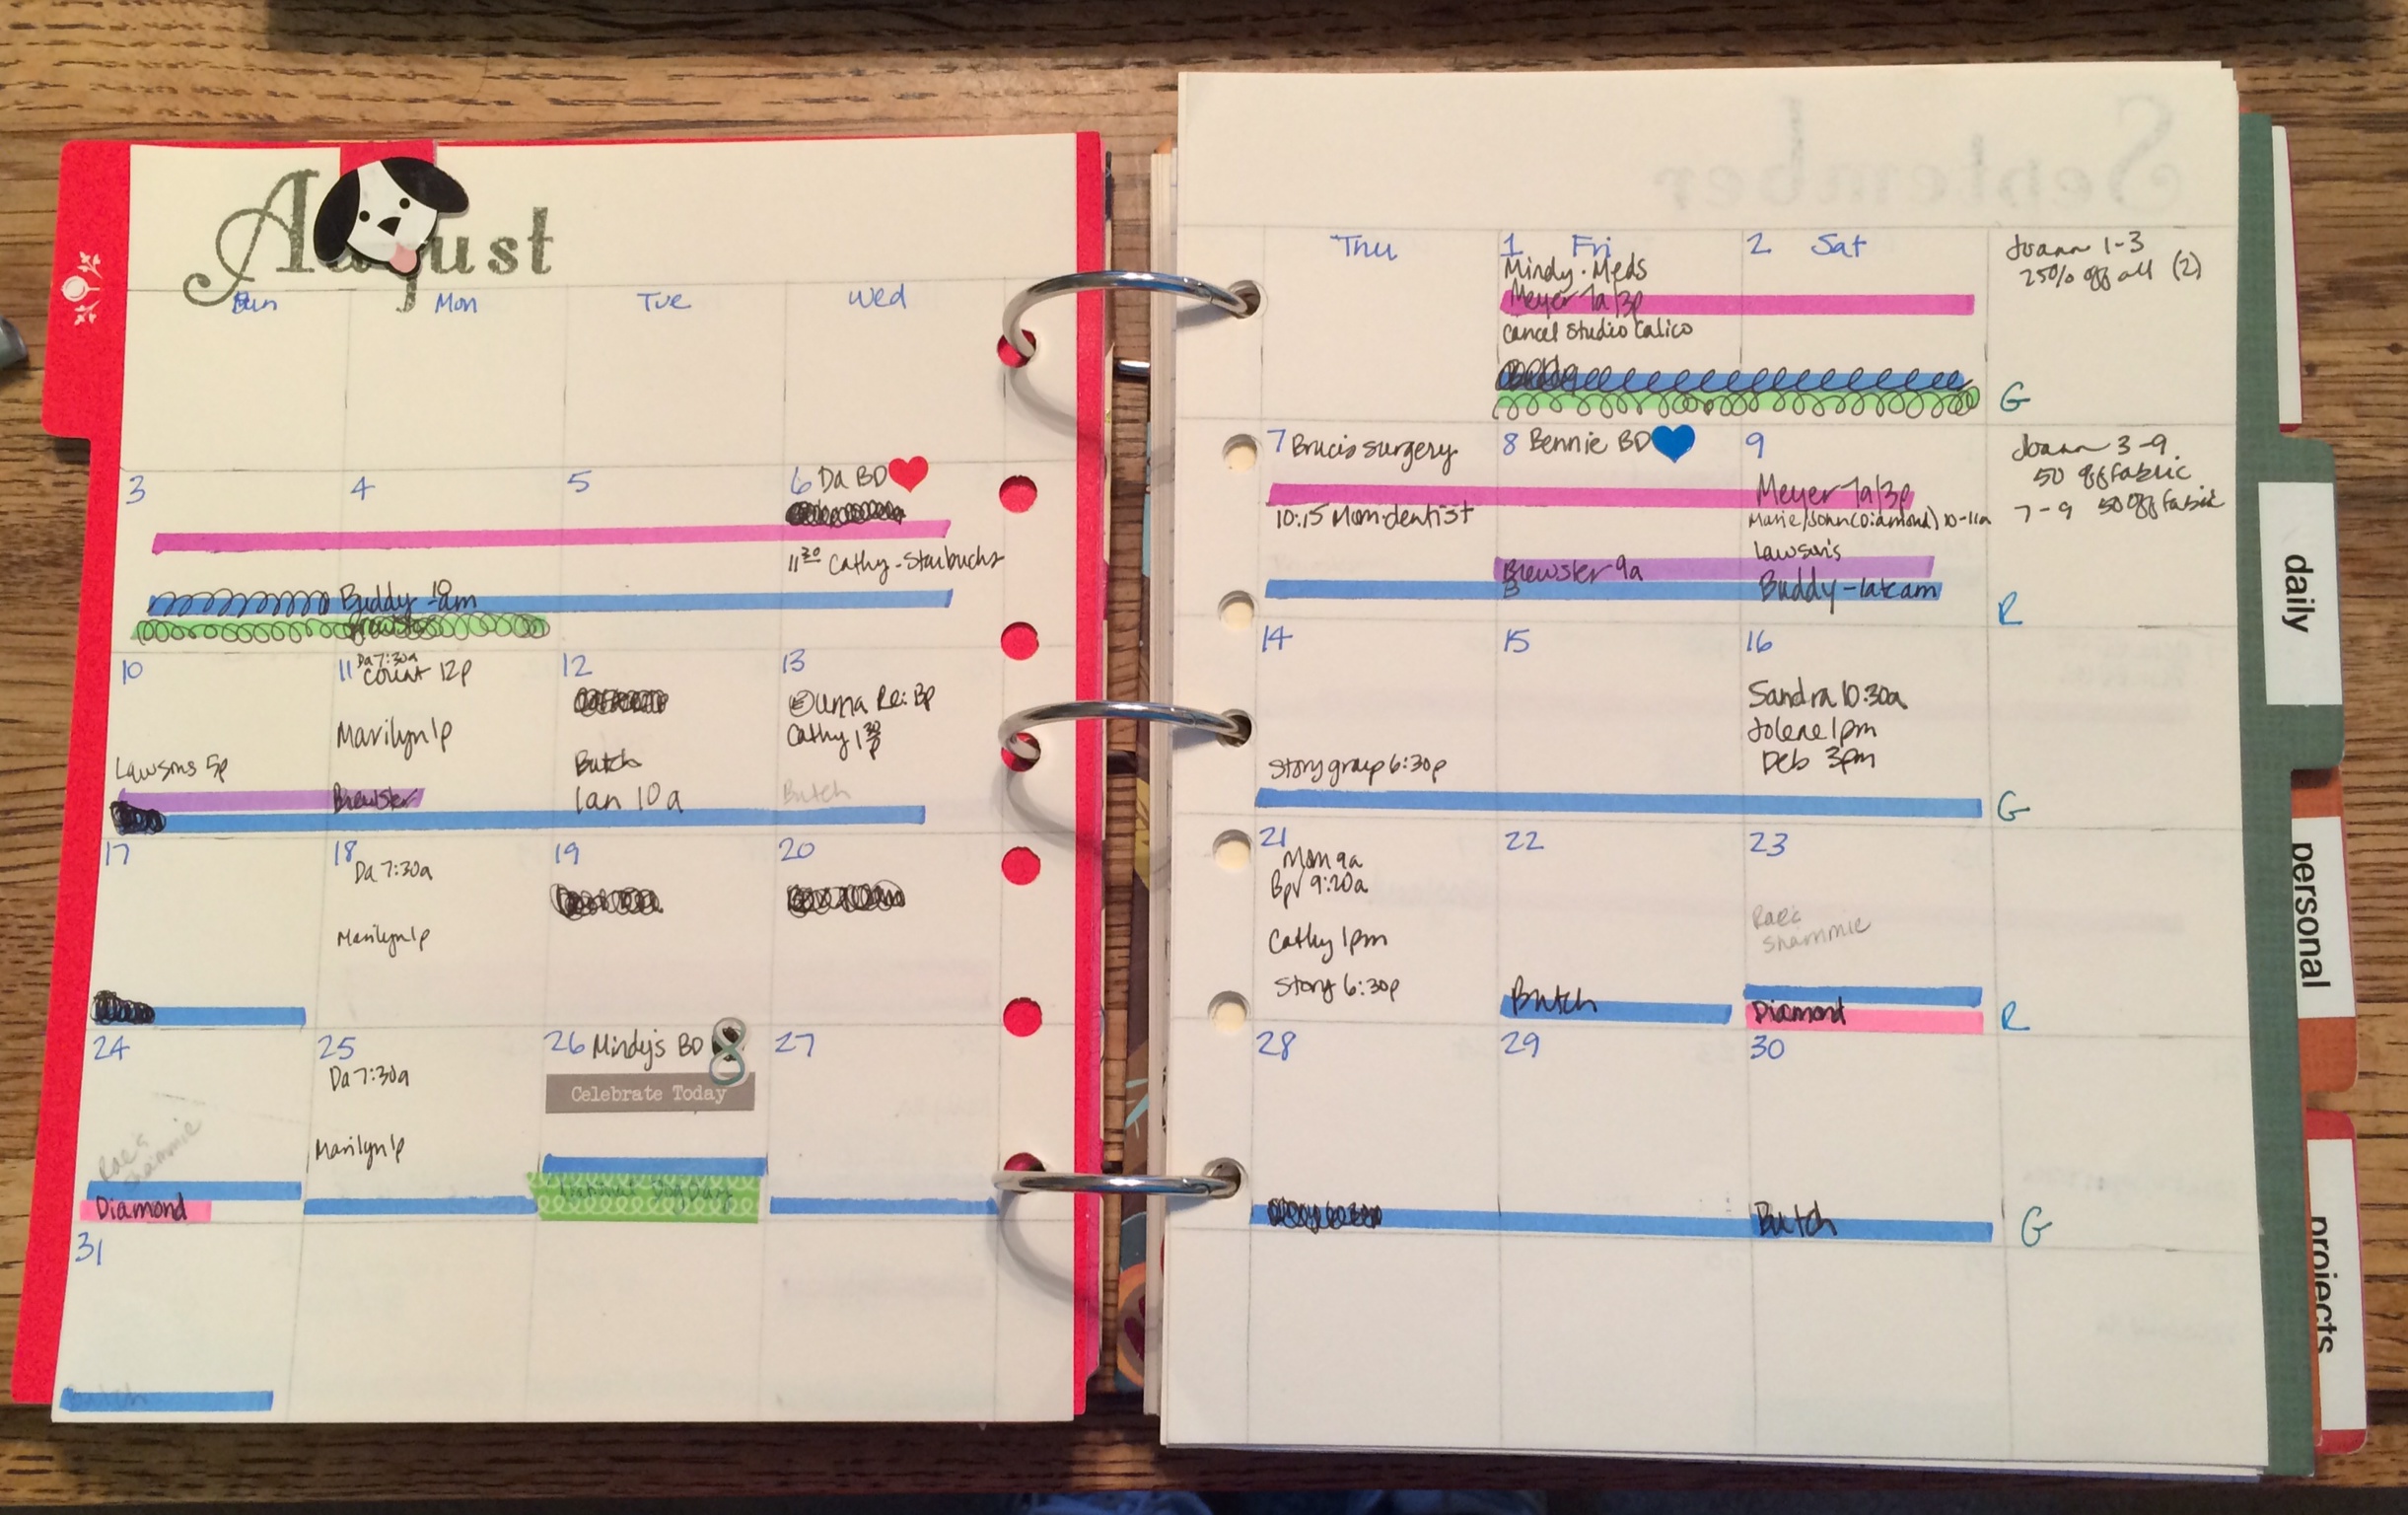 August
Sun Mon Tue Wed
3
4
5
6 Da BD
11:30 Cathy - Starbucks
Buddy
10
Lawsons 5p
11 Da 7:30a
Count 12p
Marilyn 1p
Brewster
12
Butch
Ian 10a
13
Re: BP
Cathy 1:30p
Butch
17
18
Da 7:30a
Marilyn 1p
19
20
24
Rae's
Shammie
Diamond
25
Da 7:30a
Marilyn 1p
26 Mindy's BD 8
Celebrate Today
National Dog Day
27
31
Butch
September
Thu
1 Fri
Mindy · Meds
Meyer 7a/3p
Cancel Studio Calico
2 Sat
Joann 1-3
25% off all (2)
G
7 Bruce's surgery
10:15 Mom-dentist
8 Bennie BD
Brewster 9a
9
Meyer 7a/3p
Marie/John (Diamond) 10-11a
Lawson's
Buddy - late am
Joann 3-9
50 off fabric
7-9 50 off fabric
R
14
Story group 6:30p
15
16
Sandra 10:30a
Jolene 1pm
Deb 3pm
G
21
Mom 9a
9:20a
Cathy 1pm
Story 6:30p
22
Butch
23
Rae's
Shammie
Diamond
R
28
29
30
Butch
G
daily
personal
projects